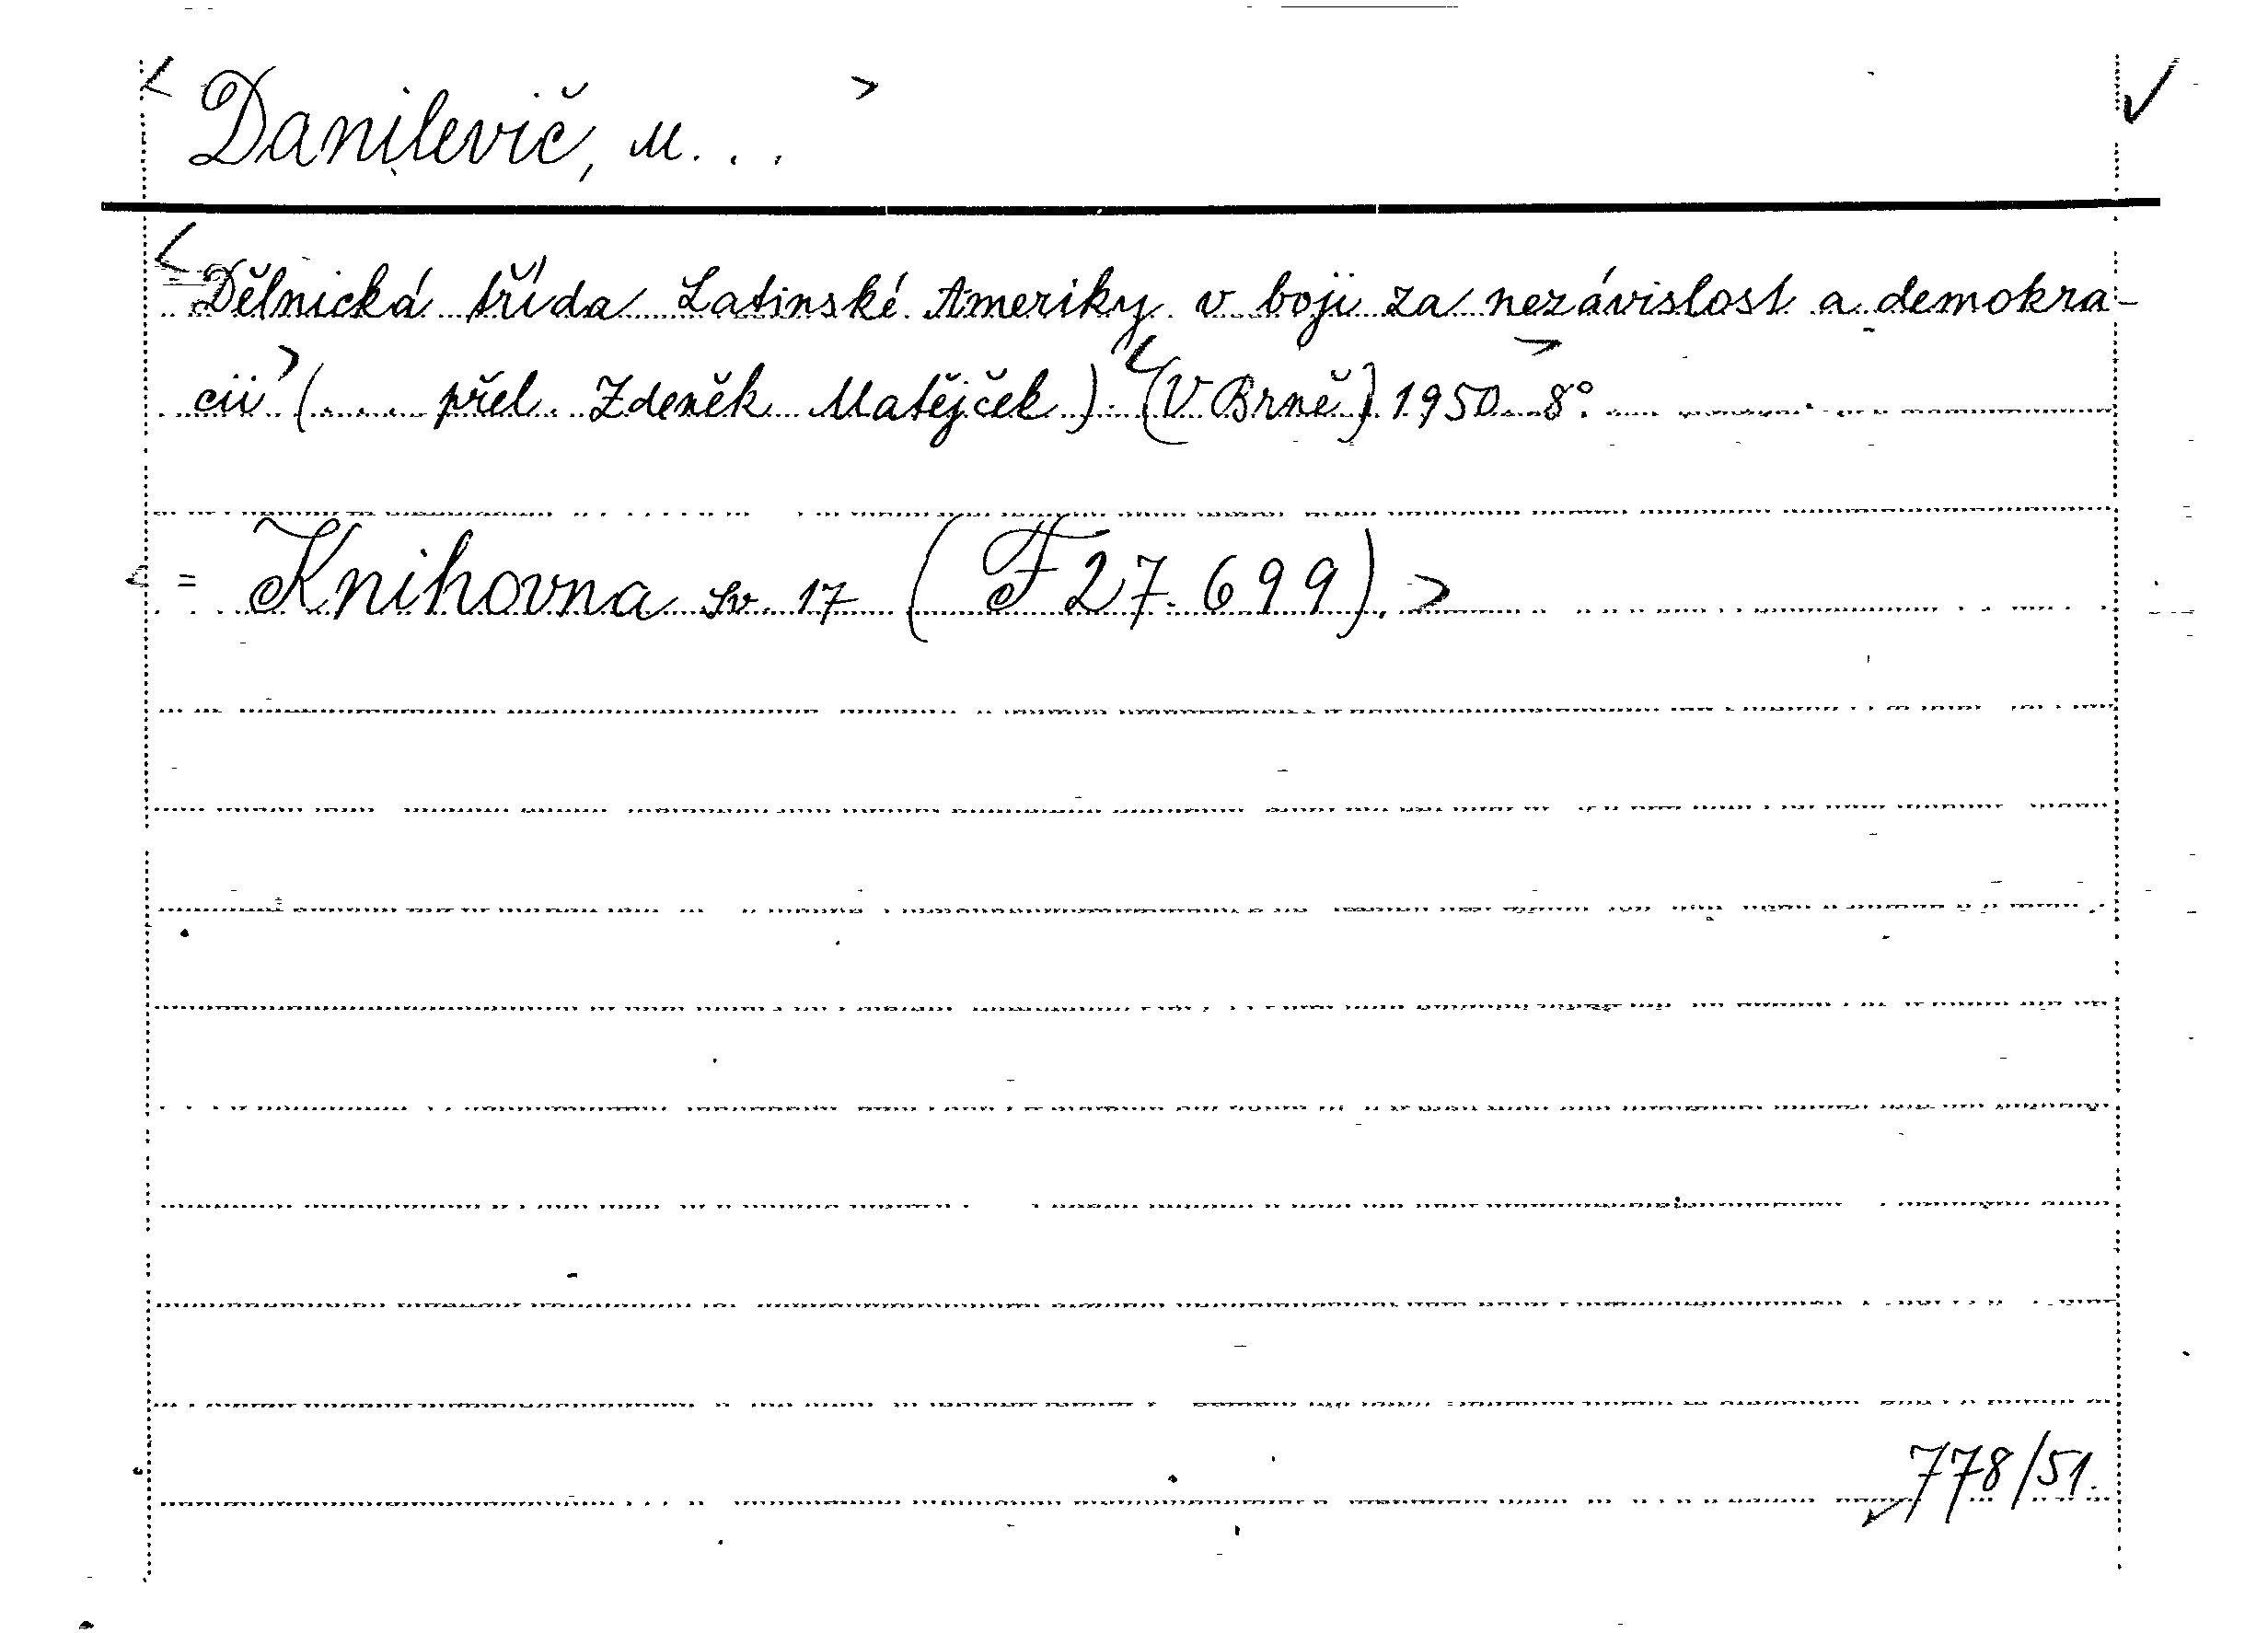 < Danilevič, M... > ✓
< Dělnická třída Latinské Ameriky v boji za nezávislost a demokra-
cii > (... přel. Zdeněk Matějček) < (V Brně) 1950 > 8°.
< = Knihovna sv. 17 (F 27.699). >
778/51.